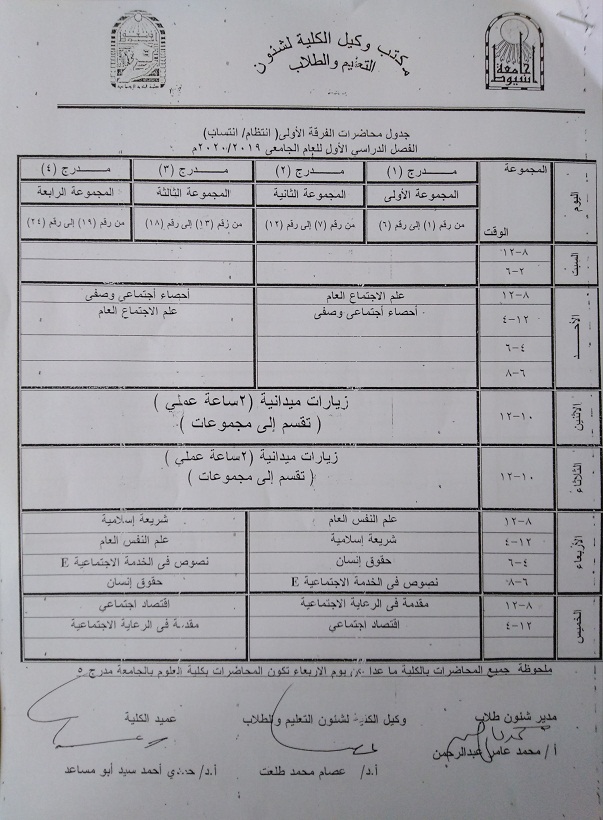 مكتب وكيل الكلية لشئون
التعليم والطلاب
جامعة أسيوط
جدول محاضرات الفرقة الأولى( انتظام/ انتساب)
الفصل الدراسي الأول للعام الجامعى ٢٠٢٠/٢٠١٩م
اليوم
المجموعة
الوقت
مدرج (١)
مدرج (٢)
مدرج (٣)
مدرج (٤)
المجموعة الأولى
المجموعة الثانية
المجموعة الثالثة
المجموعة الرابعة
من رقم (١) إلى رقم (٦)
من رقم (٧) إلى رقم (١٢)
من رقم (١٣) إلى رقم (١٨)
من رقم (١٩) إلى رقم (٢٤)
السبت
٨-١٢
٢-٦
الأحد
٨-١٢ علم الاجتماع العام أحصاء أجتماعى وصفى
١٢-٤ أحصاء أجتماعى وصفى علم الاجتماع العام
٤-٦
٦-٨
الاثنين
١٠-١٢
زيارات ميدانية (٢ساعة عملي )
( تقسم إلى مجموعات )
الثلاثاء
١٠-١٢
زيارات ميدانية (٢ساعة عملي )
( تقسم إلى مجموعات )
الأربعاء
٨-١٢ علم النفس العام شريعة إسلامية
١٢-٤ شريعة إسلامية علم النفس العام
٤-٦ حقوق إنسان نصوص فى الخدمة الاجتماعية E
٦-٨ نصوص فى الخدمة الاجتماعية E حقوق إنسان
الخميس
٨-١٢ مقدمة فى الرعاية الاجتماعية اقتصاد اجتماعي
١٢-٤ اقتصاد اجتماعي مقدمة فى الرعاية الاجتماعية
ملحوظة جميع المحاضرات بالكلية ما عدا يوم الاربعاء تكون المحاضرات بكلية العلوم بالجامعة مدرج ٥
مدير شئون طلاب
وكيل الكلية لشئون التعليم والطلاب
عميد الكلية
أ / محمد عامر عبدالرحمن
أ.د/ عصام محمد طلعت
أ.د/ حمدي أحمد سيد أبو مساعد